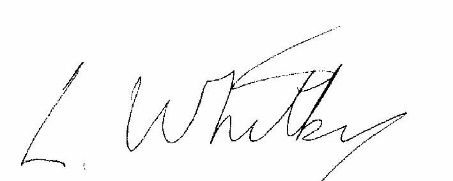 L. Whitby